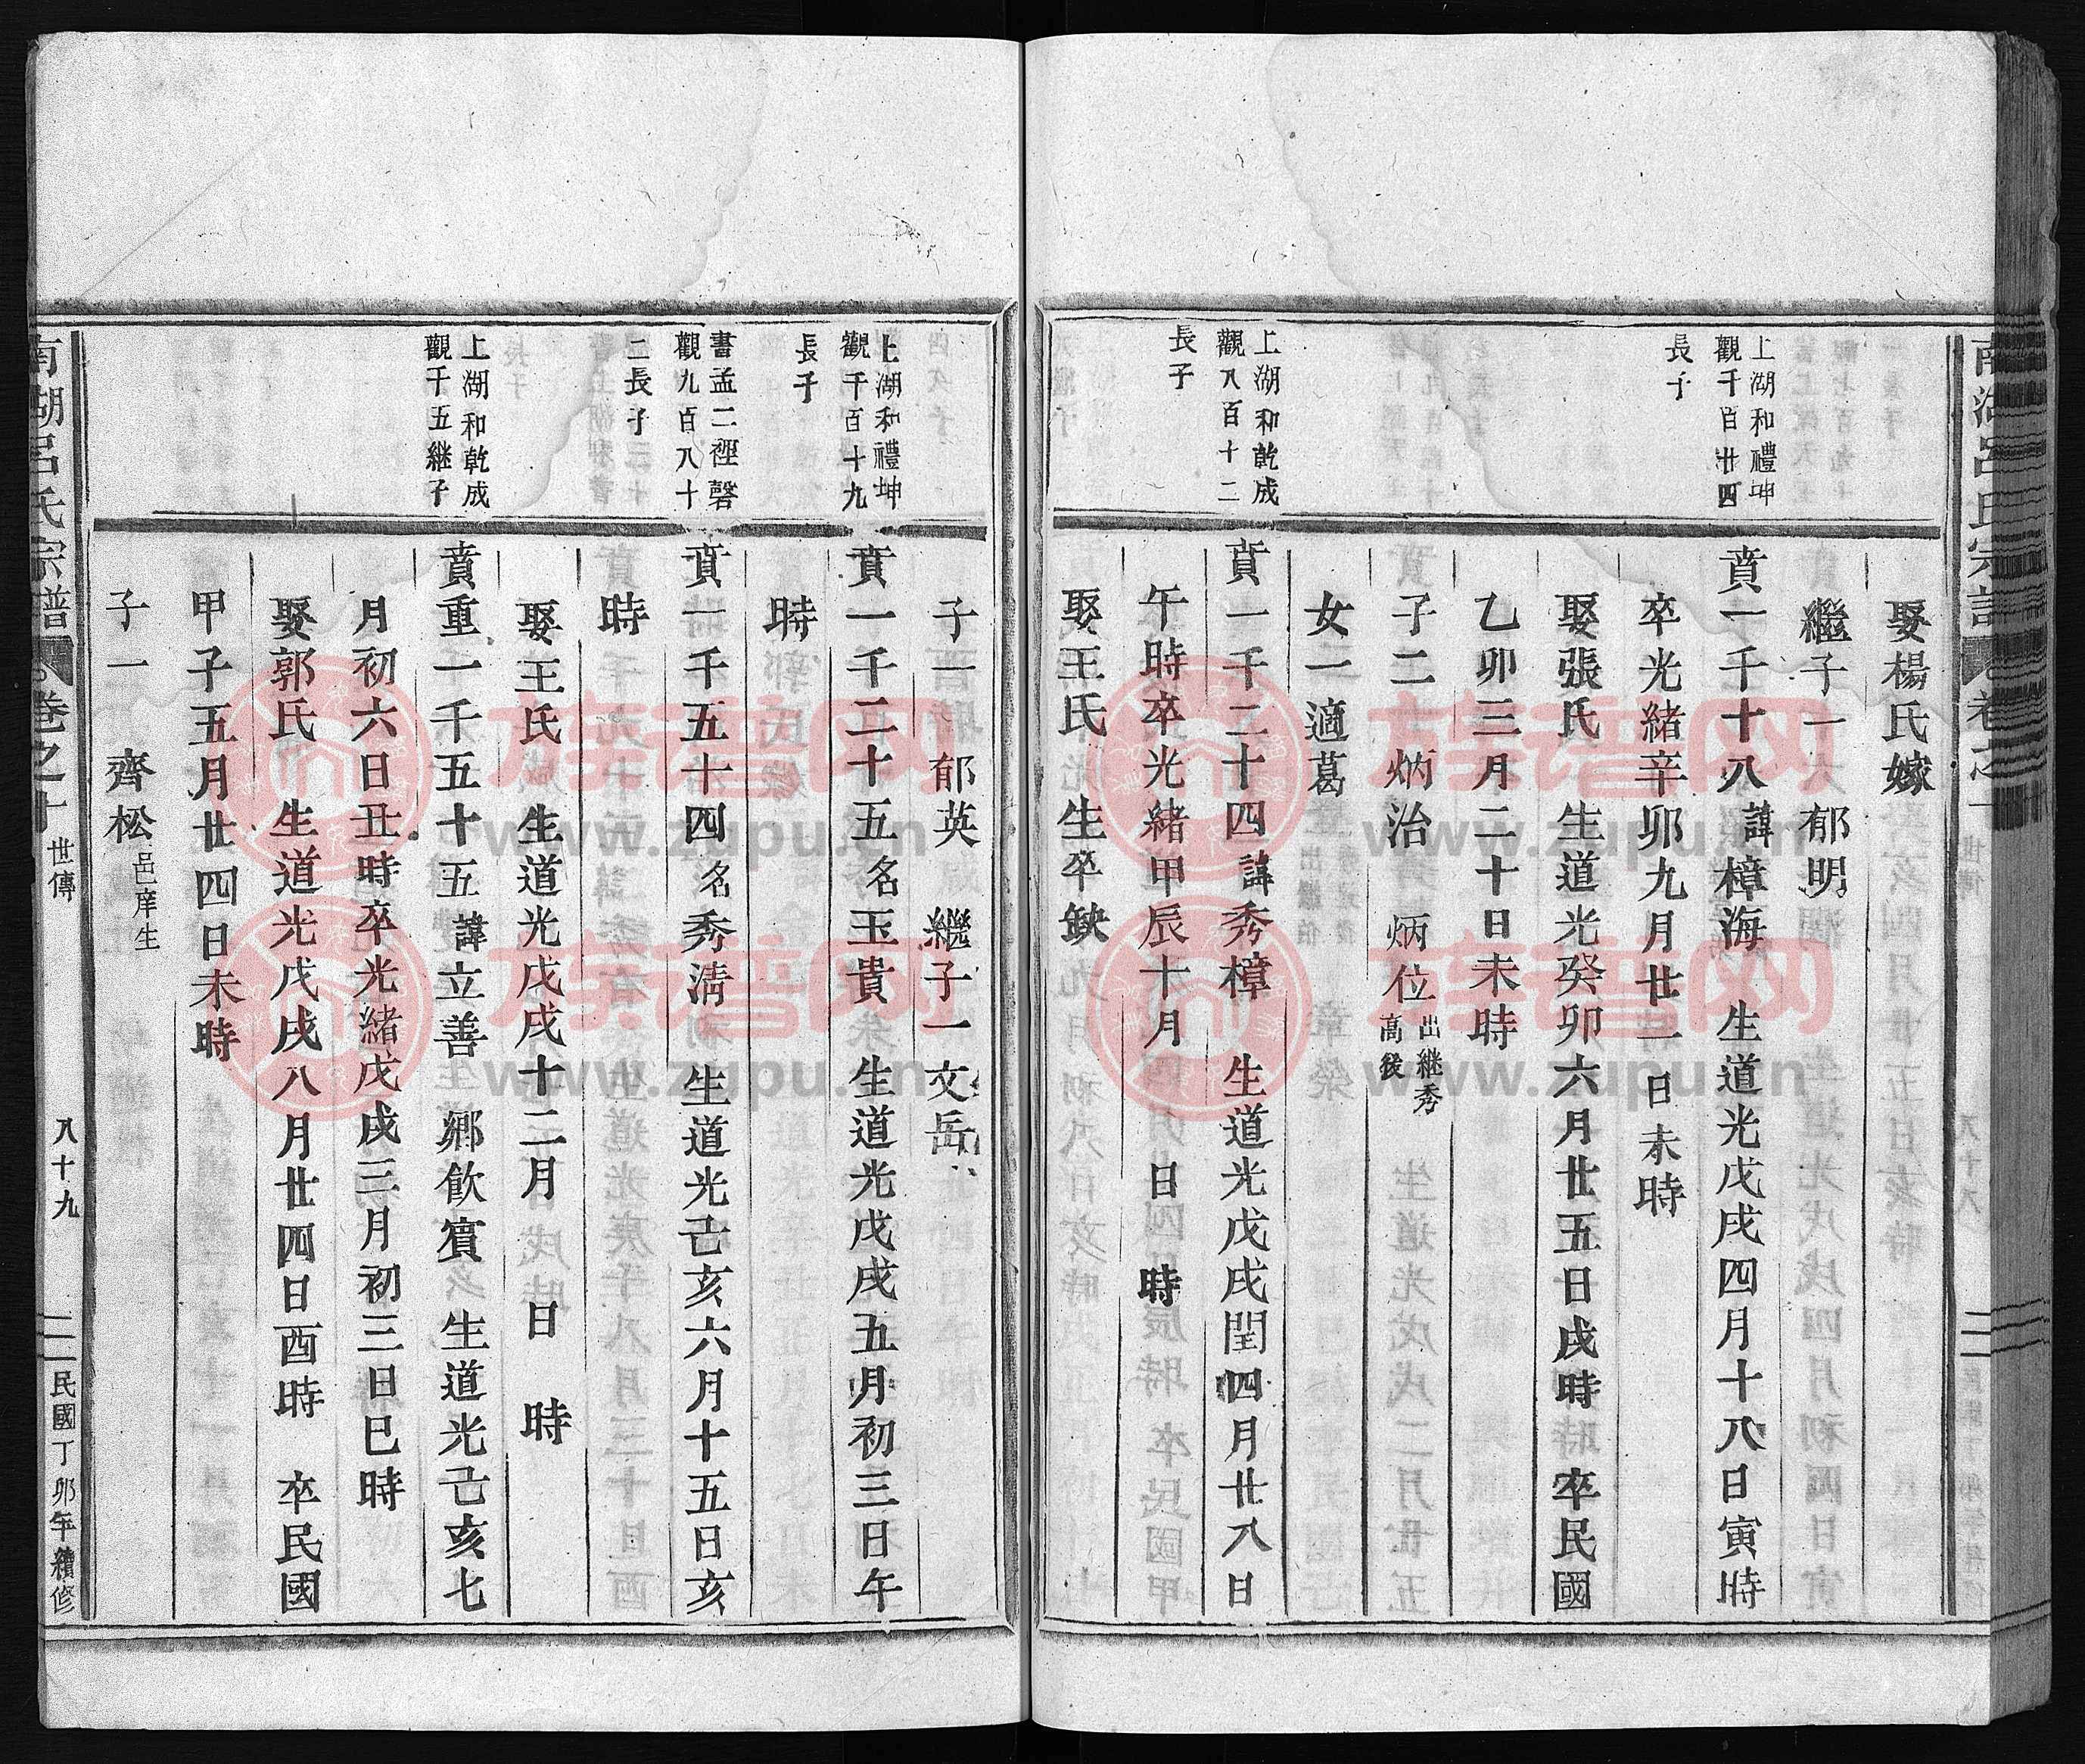 娶楊氏嫁
繼子一　郁明
上湖和禮坤
觀千百廿四
長子
賁一千十八諱樟海　生道光戊戌四月十八日寅時
卒光緒辛卯九月廿一日未時
娶張氏　生道光癸卯六月廿五日戌時　卒民國
乙卯三月二十日未時
子二　炳治　炳位出繼秀高後
女一適葛
上湖和乾成
觀八百十二
長子
賁一千二十四諱秀樟　生道光戊戌閏四月廿八日
午時卒光緒甲辰十月　日　時
娶王氏　生卒缺
子一　郁英　繼子一　文岳
上湖和禮坤
觀千百十九
長子
賁一千二十五名玉貴　生道光戊戌五月初三日午
時
書孟二𥚃磬
觀九百八十
二長子
賁一千五十四名秀清　生道光己亥六月十五日亥
時
娶王氏　生道光戊戌十二月　日　時
上湖和乾成
觀千五繼子
賁重一千五十五諱立善　鄉飲賓　生道光己亥七
月初六日丑時卒光緒戊戌三月初三日巳時
娶郭氏　生道光戊戌八月廿四日酉時　卒民國
甲子五月廿四日未時
子一　齊松邑庠生
南湖呂氏宗譜　卷之十　世傳　八十九　民國丁卯年續修
族谱网
www.zupu.cn
族谱网
www.zupu.cn
族谱网
www.zupu.cn
族谱网
www.zupu.cn